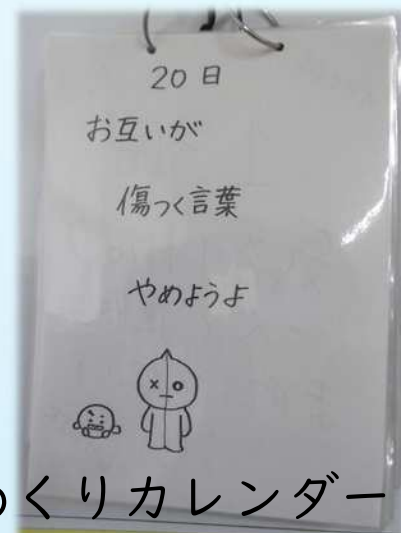 20日
お互いが
傷つく言葉
やめようよ
くりカレンダー